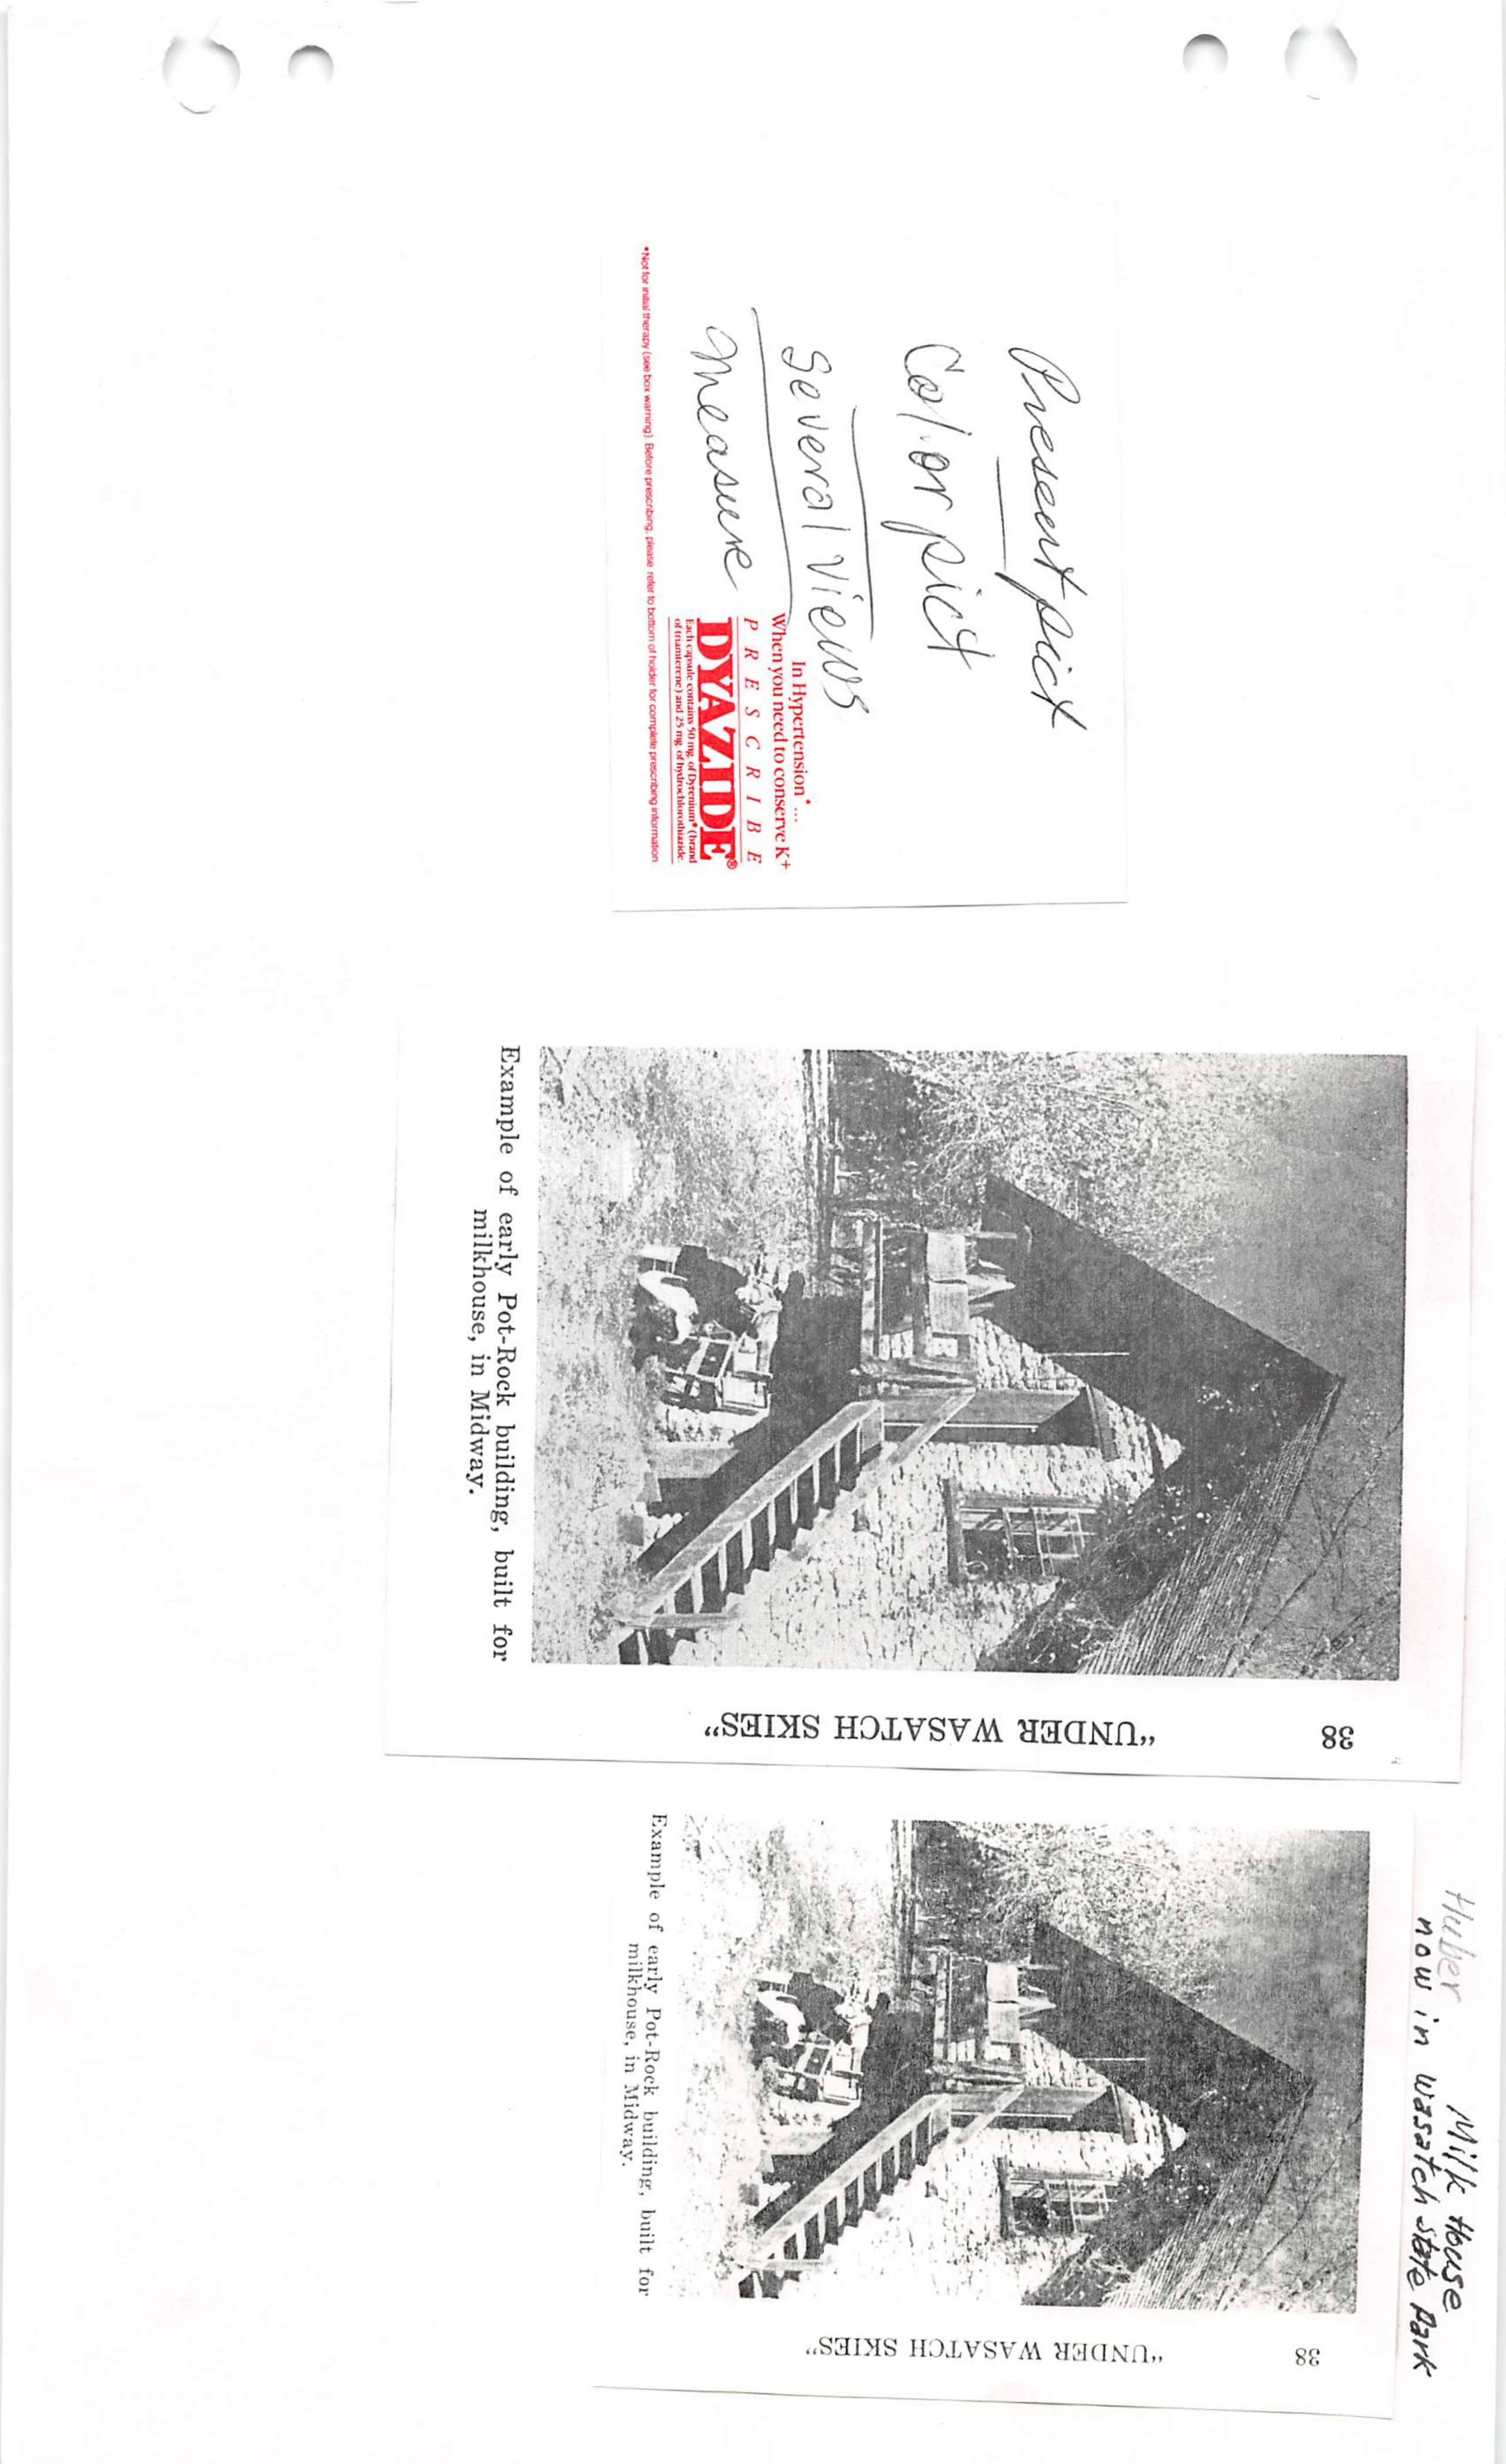 Present pict
Color pict
Several Views
measure
In Hypertension* ...
When you need to conserve K+
PRESCRIBE
DYAZIDE®
Each capsule contains 50 mg. of Dyrenium® (brand
of triamterene) and 25 mg. of hydrochlorothiazide.
*Not for initial therapy (see box warning). Before prescribing, please refer to bottom of holder for complete prescribing information.
Example of early Pot-Rock building, built for
milkhouse, in Midway.
38
"UNDER WASATCH SKIES"
Huber Milk House
now in wasatch state Park
Example of early Pot-Rock building, built for
milkhouse, in Midway.
38
"UNDER WASATCH SKIES"